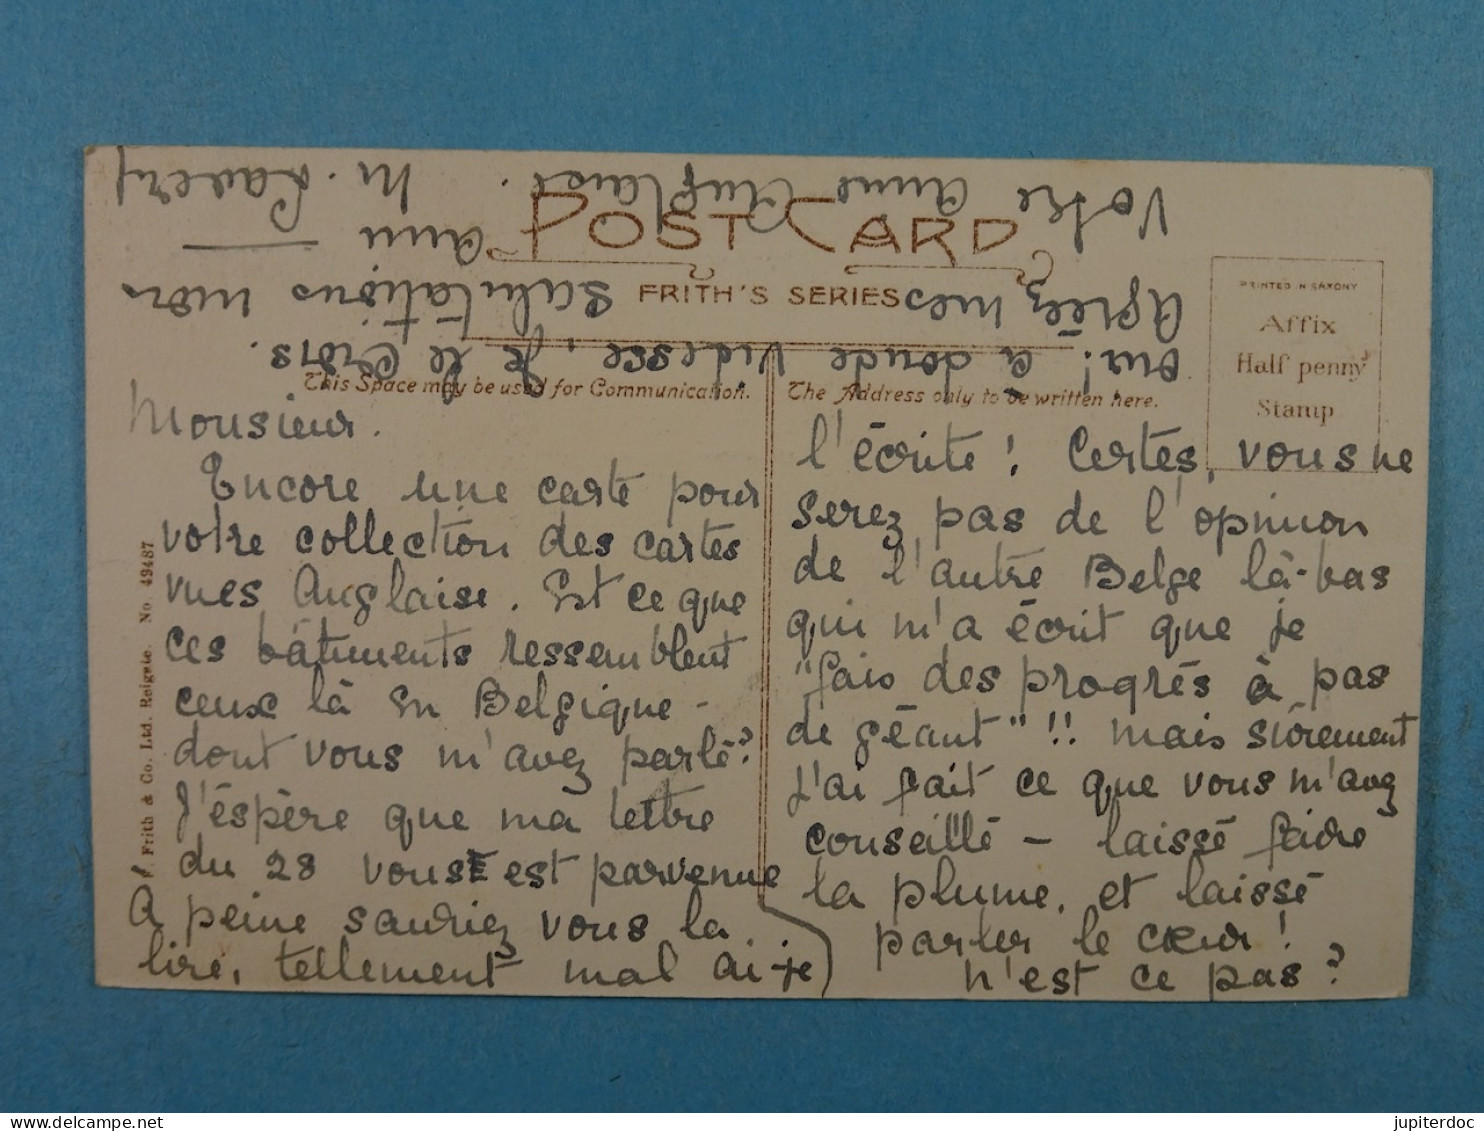 POST CARD
FRITH'S SERIES
PRINTED IN SAXONY
Affix
Half penny
Stamp
This Space may be used for Communication.
The Address only to be written here.
F. Frith & Co. Ltd. Reigate. No. 49487
Monsieur.
Encore une carte pour
votre collection des cartes
vues Anglaise. Est ce que
ces bâtiments ressemblent
ceux là en Belgique -
dont vous m'avez parlé?
J'éspère que ma lettre
du 28 vous est parvenue
A peine sauriez vous la
lire, tellement mal ai-je
l'écrite! Certes, vous ne
serez pas de l'opinion
de l'autre Belge là-bas
qui m'a écrit que je
"fais des progrés à pas
de géant"!! mais sûrement
J'ai fait ce que vous m'avez
conseillé - laissé faire
la plume, et laissé
parler le cœur!
n'est ce pas?
Oui! à Je le crois.
Agréez mes Salutations mon
ami
Votre amie Anglaise. M. Lavery
jupiterdoc
www.delcampe.net